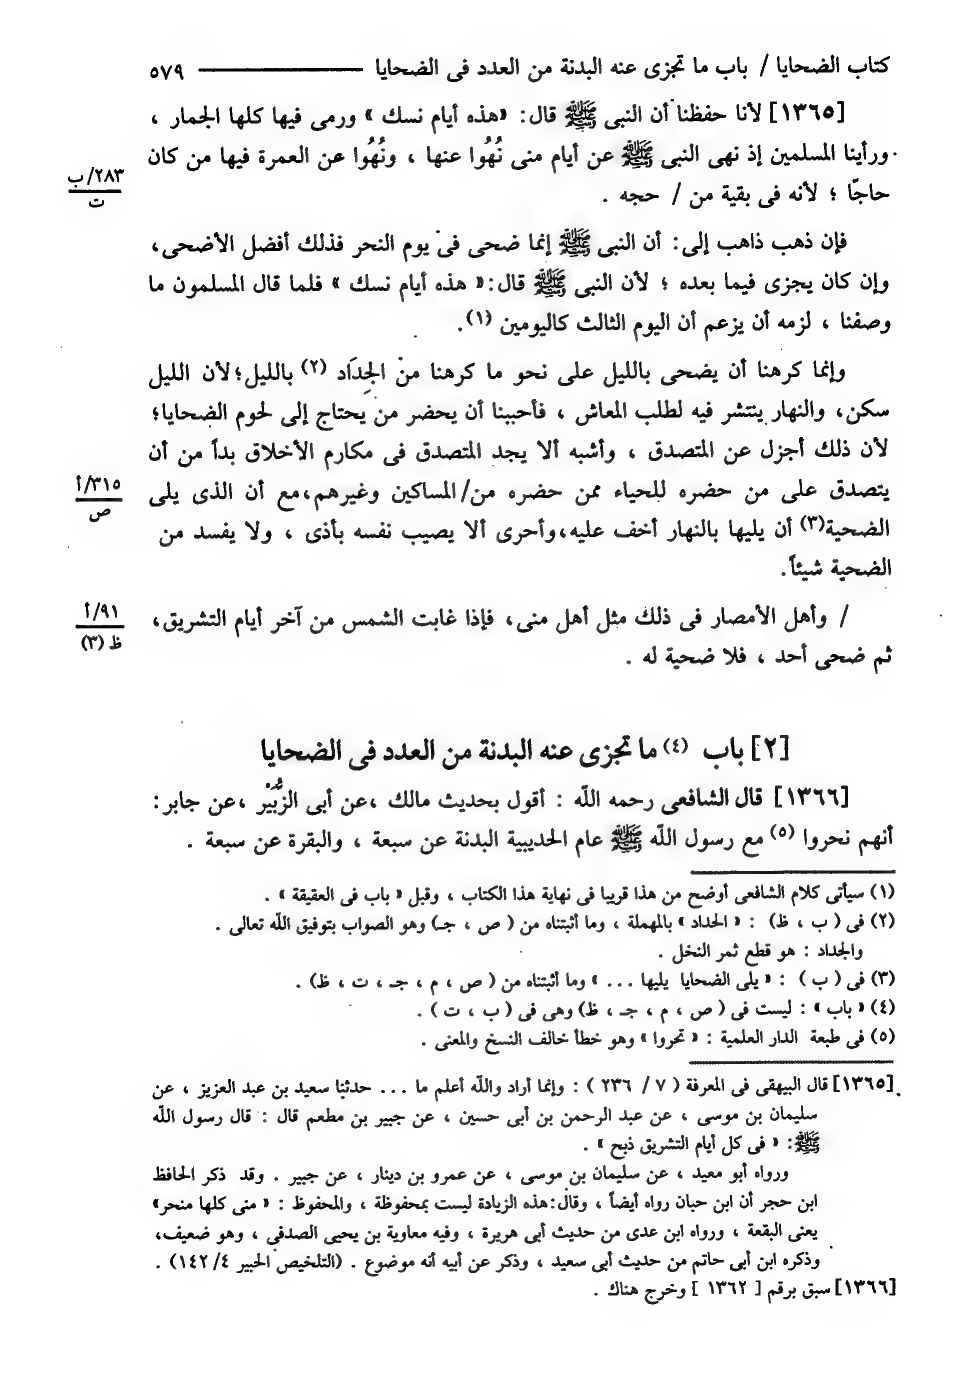 كتاب الضحايا / باب ما تجزى عنه البدنة من العدد فى الضحايا ـــــــ ٥٧٩
[١٣٦٥] لأنا حفظنا أن النبى ﷺ قال: «هذه أيام نسك» ورمى فيها كلها الجمار ،
ورأينا المسلمين إذ نهى النبى ﷺ عن أيام منى نُهُوا عنها ، ونُهُوا عن العمرة فيها من كان
حاجًا ؛ لأنه فى بقية من / حجه .
٢٨٣/ب
ت
فإن ذهب ذاهب إلى: أن النبى ﷺ إنما ضحى فى يوم النحر فذلك أفضل الأضحى،
وإن كان يجزى فيما بعده ؛ لأن النبى ﷺ قال:« هذه أيام نسك » فلما قال المسلمون ما
وصفنا ، لزمه أن يزعم أن اليوم الثالث كاليومين (١).
وإنما كرهنا أن يضحى بالليل على نحو ما كرهنا من الجِدَاد (٢) بالليل؛لأن الليل
سكن، والنهار ينتشر فيه لطلب المعاش ، فأحببنا أن يحضر من يحتاج إلى لحوم الضحايا؛
لأن ذلك أجزل عن المتصدق ، وأشبه ألا يجد المتصدق فى مكارم الأخلاق بداً من أن
يتصدق على من حضره للحياء ممن حضره من/المساكين وغيرهم،مع أن الذى يلى
٣١٥/أ
ص
الضحية(٣) أن يليها بالنهار أخف عليه،وأحرى ألا يصيب نفسه بأذى ، ولا يفسد من
الضحية شيئاً.
/ وأهل الأمصار فى ذلك مثل أهل منى، فإذا غابت الشمس من آخر أيام التشريق،
٩١/أ
ظ (٣)
ثم ضحى أحد ، فلا ضحية له .
[٢] باب (٤) ما تجزى عنه البدنة من العدد فى الضحايا
[١٣٦٦] قال الشافعى رحمه الله : أقول بحديث مالك ،عن أبى الزُّبَيْر ،عن جابر:
أنهم نحروا (٥) مع رسول الله ﷺ عام الحديبية البدنة عن سبعة ، والبقرة عن سبعة .
(١) سيأتى كلام الشافعى أوضح من هذا قريبا فى نهاية هذا الكتاب ، وقبل « باب فى العقيقة » .
(٢) فى ( ب ، ظ) : « الحداد » بالمهملة ، وما أثبتناه من ( ص ، جـ) وهو الصواب بتوفيق الله تعالى .
والجداد : هو قطع ثمر النخل .
(٣) فى ( ب ) : « يلى الضحايا يليها ... » وما أثبتناه من ( ص ، م ، جـ ، ت ، ظ) .
(٤) « باب » : ليست فى ( ص ، م ، جـ ، ظ) وهى فى ( ب ، ت ) .
(٥) فى طبعة الدار العلمية : « تحروا » وهو خطأ خالف النسخ والمعنى .
[١٣٦٥] قال البيهقى فى المعرفة ( ٧ / ٢٣٦ ) : وإنما أراد والله أعلم ما ... حدثنا سعيد بن عبد العزيز ، عن
سليمان بن موسى ، عن عبد الرحمن بن أبى حسين ، عن جبير بن مطعم قال : قال رسول الله
ﷺ: « فى كل أيام التشريق ذبح » .
ورواه أبو معيد ، عن سليمان بن موسى ، عن عمرو بن دينار ، عن جبير . وقد ذكر الحافظ
ابن حجر أن ابن حبان رواه أيضاً ، وقال:هذه الزيادة ليست بمحفوظة ، والمحفوظ : « منى كلها منحر»
يعنى البقعة ، ورواه ابن عدى من حديث أبى هريرة ، وفيه معاوية بن يحيى الصدفى ، وهو ضعيف،
وذكره ابن أبى حاتم من حديث أبى سعيد ، وذكر عن أبيه أنه موضوع . (التلخيص الحبير ٤/ ١٤٢) .
[١٣٦٦] سبق برقم [ ١٣٦٢ ] وخرج هناك .